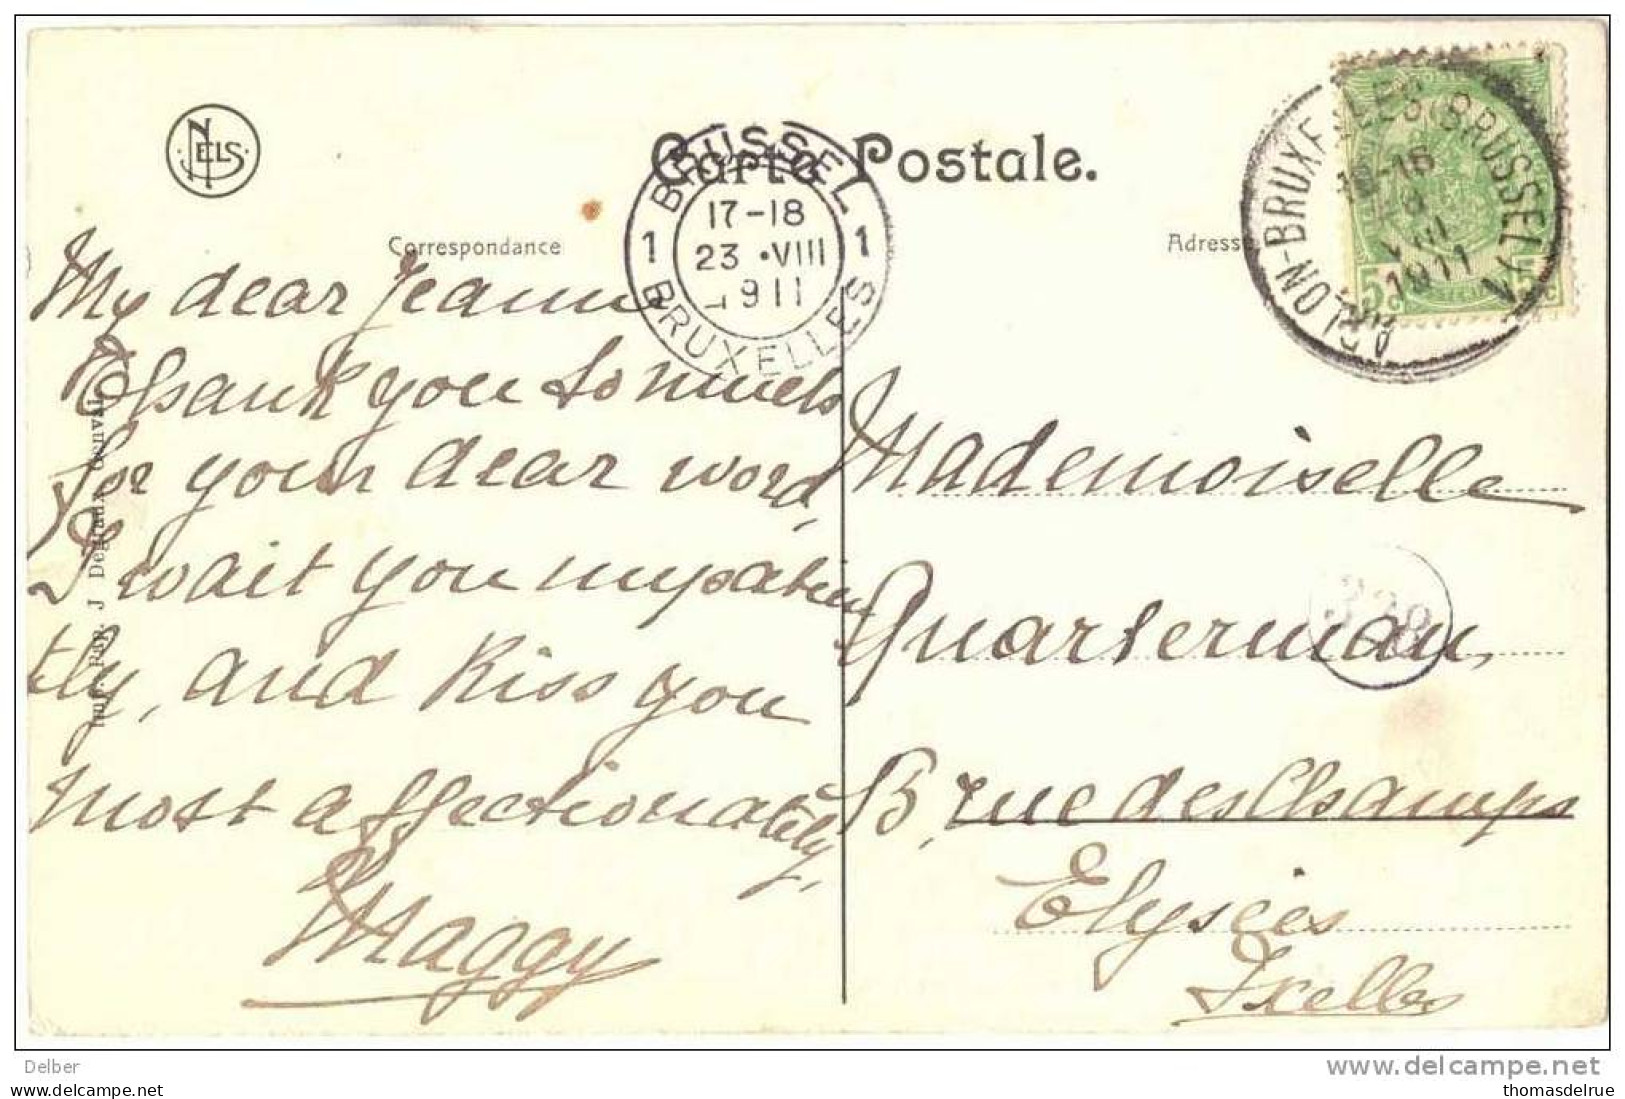 NELS
Carte Postale.
BRUSSEL
1 17-18 1
23 •VIII
1911
BRUXELLES
ARLON-BRUXELLES(BRUSSEL)
VIII
1911
Correspondance
Adresse
My dear Jeanne
Thank you so much
for your dear word,
I wait you impatien
tly, and kiss you
most affectionately,
Maggy
Mademoiselle
Quarterman,
B, rue des Champs
Elysées
Ixelles
328
J Degraux Genval
Delber
delcampe.net
thomasdelrue
www.delcampe.net